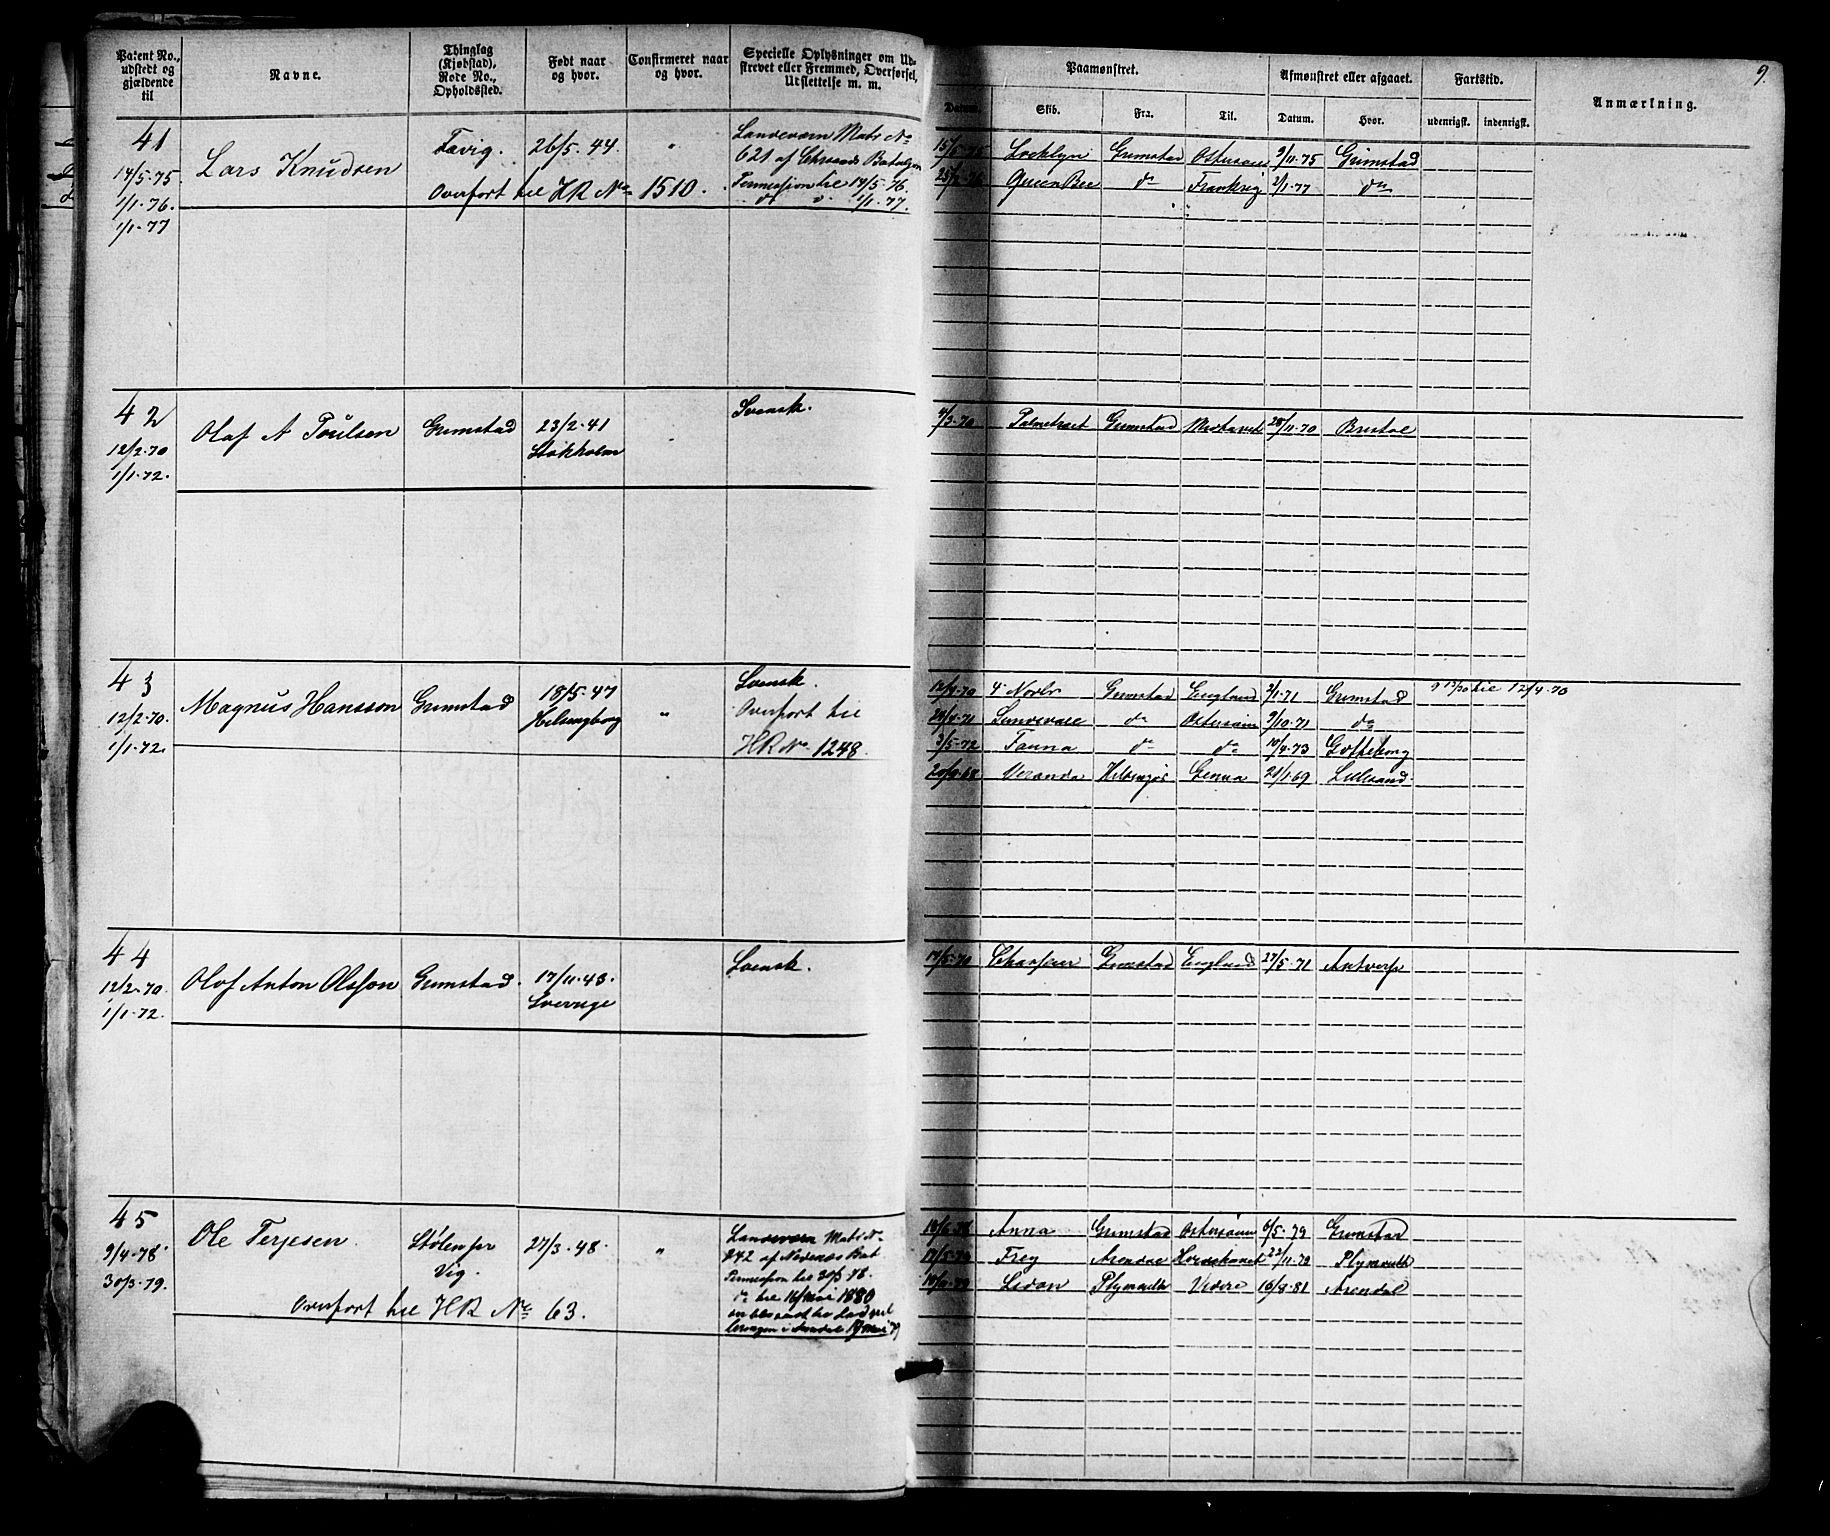 Patent No., udstedt og gjældende til
Navne.
Thinglag (Kjøbstad), Rode No., Opholdssted.
Født naar og hvor.
Confirmeret naar og hvor.
Specielle Oplysninger om Udskrevet eller Fremmed, Overførsel, Udslettelse m. m.
Paamønstret.
Datum.
Skib.
Fra.
Til.
Afmønstret eller afgaaet.
Datum.
Hvor.
Fartstid.
udenrigsk.
indenrigsk.
Anmærkning.
9.
41
14/5-75
1/1-76.
1/1-77
Lars Knudsen
26/5.44.
"
Landeværn Matr No
621 af Chrsands Bataljon
Permission til 14/5-76.
do " 1/1-77.
Overført til HR No 1510.
15/5-75 Grimstad Østersøen 9/11-75 Grimstad
Queen Bee do 2/1-77 do
42
12/2-70
1/1-72.
Olaf A Poulsen
Grimstad
23/2-41
Stokholm
Svensk.
4/3-70 Grimstad 28/11-70 Bristol
43
12/2-70.
1/1-72.
Magnus Hansson
Grimstad
18/5-47
Helsingborg
"
Svensk.
Overført til
HR No 1248.
12/4-70 Grimstad England 2/1-71 Grimstad
Sundsvale do Østersøen 9/10-71 do
3/5-72 Fauna do do 10/4-73 Gotteborg
Veranda Helsingør Genua 21/1-69 Lillesand
til 12/4-70
44
12/2-70.
1/1-72.
Olof Anton Olsson
Grimstad.
17/11-43.
Sverige
Svensk.
17/5-70 Grimstad England 27/5-71 Antverp
45
9/4-78
30/3-79.
Ole Terjesen
Stølen pr
Vig.
27/3-48.
"
Landeværn Matr No
242 af Nedenæs Bat
Permission til 30/3-78.
do til 16/Mai 1880
Overført til HR No 63.
Anna Grimstad Østersøen 6/5-79 Grimstad
17/5-79 Frey Arendal 22/11-79 Plymouth
Sidon Plymouth Videre 16/8-81 Arendal